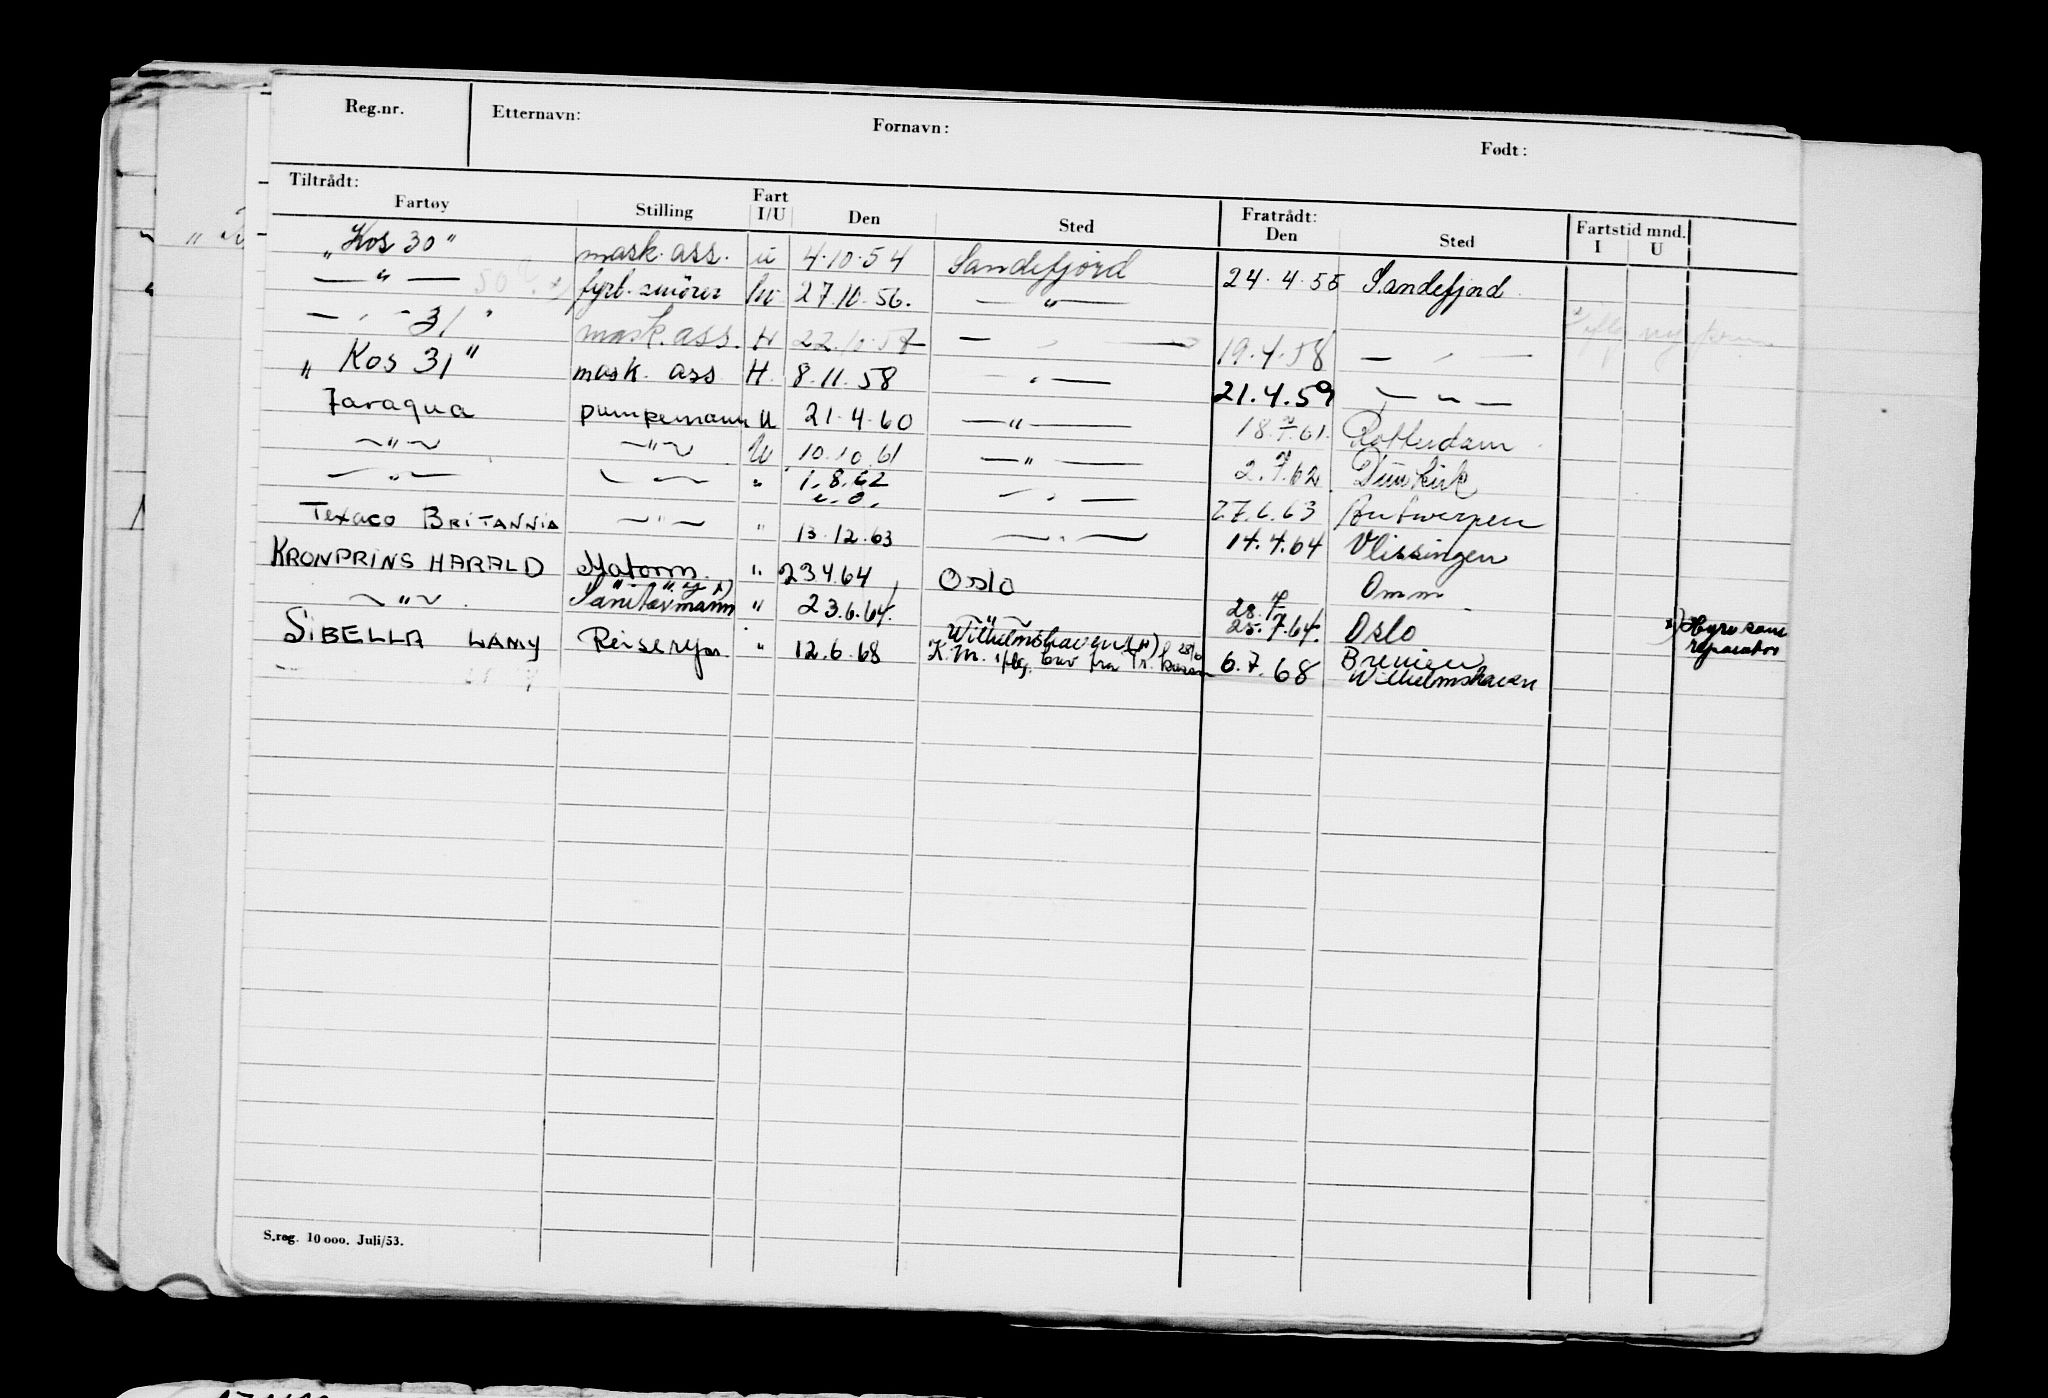 Reg.nr. Etternavn: Fornavn: Født:
Tiltrådt: Fratrådt: Fartstid mnd.
Fartøy Stilling Fart I/U Den Sted Den Sted I U
„Kos 30" mask. ass. u 4.10.54 Sandefjord 24.4.55 Sandefjord
— " — fyrb. smörer 27.10.56. — " —
— " - 31 " mask. ass. H 22.10.57 — " — 19.4.58 — " —
„ Kos 31" mask. ass H. 8.11.58 — " — 21.4.59 — " —
Taraqua pumpemann U 21.4.60 — " — 18. .61. Rotterdam
— " — — " — U 10.10.61 — " — 2. .62 Dünkirk
— " — — " — " 1.8.62 — " — 27.6.63 Antwerpen
TEXACO BRITANNIA — " — " 13.12.63 — " — 14.4.64 Vlissingen
KRONPRINS HARALD Matorm. " 23.4.64 Oslo Omm
— " — Sanitærmann x) " 23.6.64. — " — 25.7.64. Oslo x) Hyre som reparatør
SIBELLA LAMY Reiserep. " 12.6.68 Wilhelmshaven 6.7.68 Bremen
K.M. iflg. brev fra Wilhelmshaven
S.reg. 10 000. Juli/53.